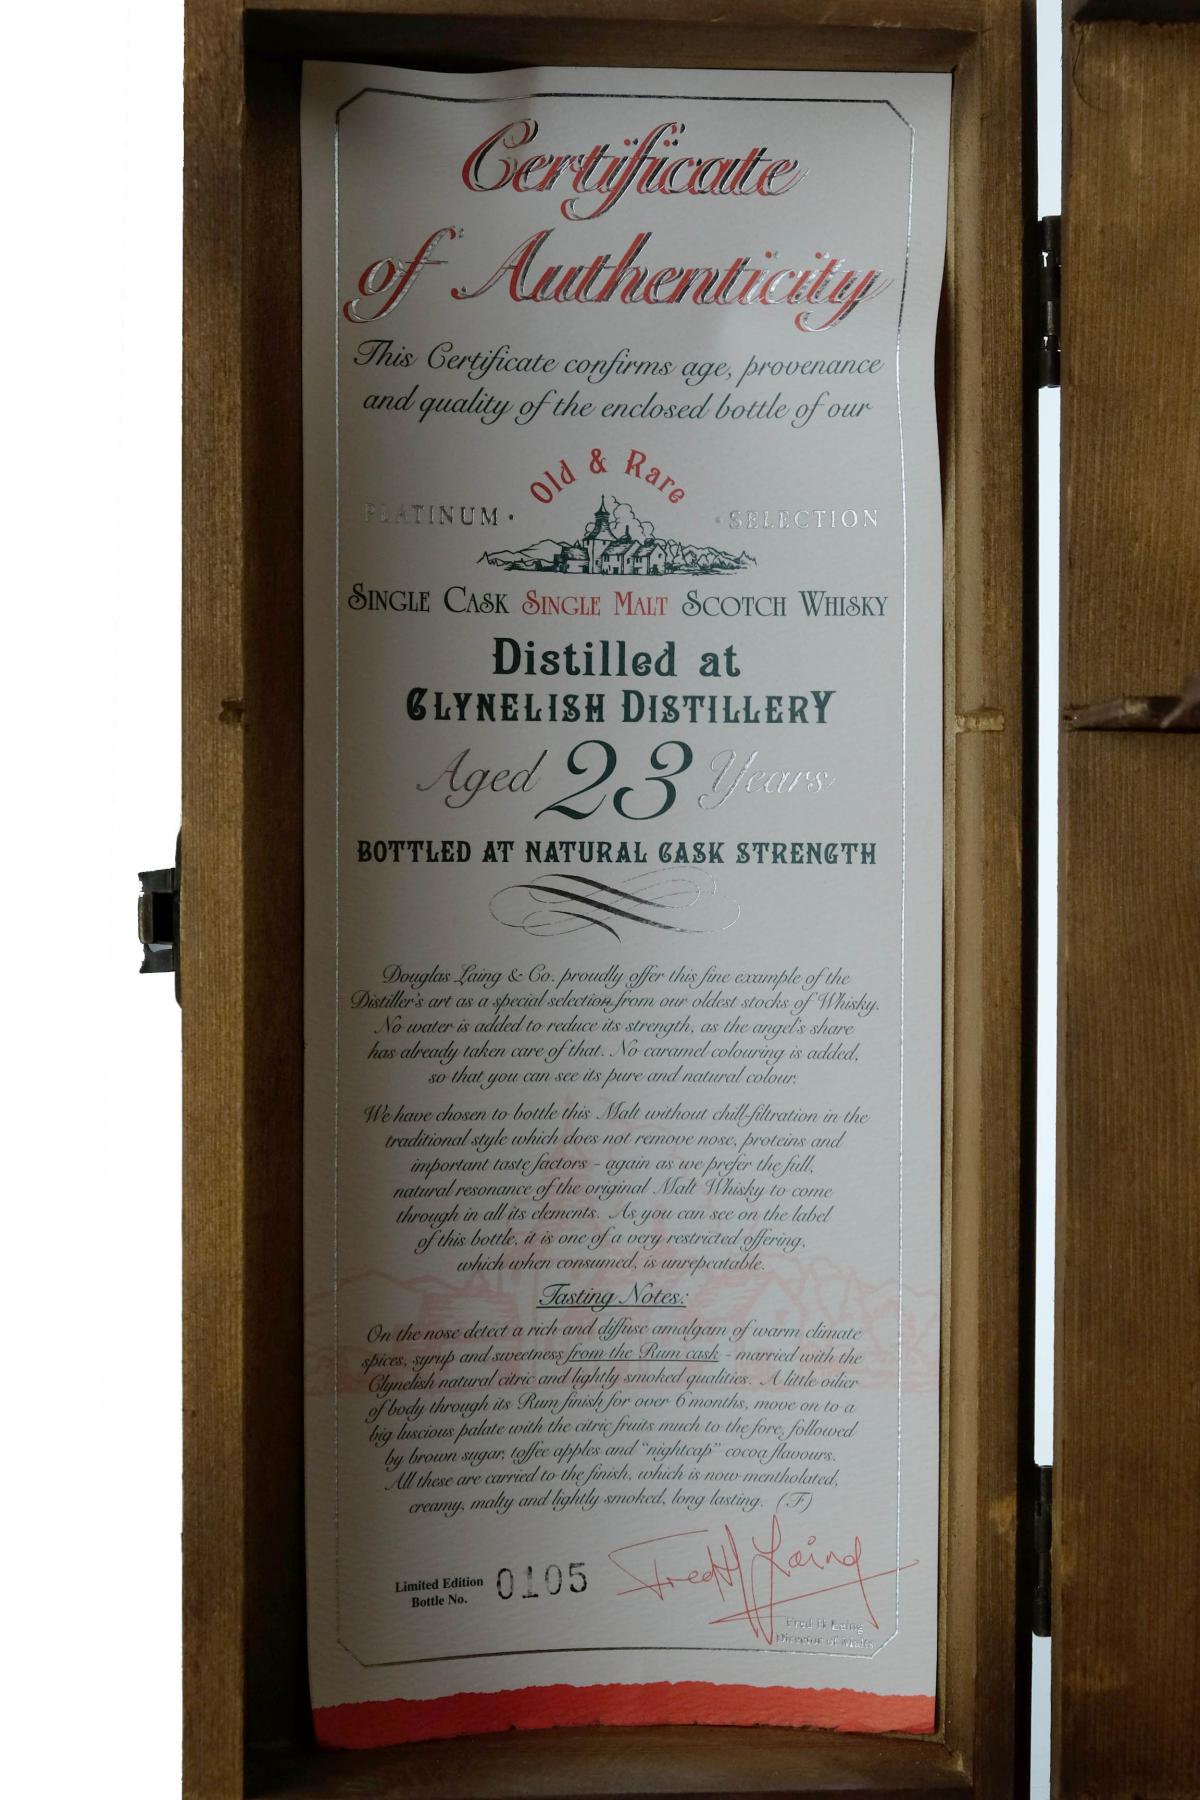 Certificate
of Authenticity
This Certificate confirms age, provenance
and quality of the enclosed bottle of our
Old & Rare
PLATINUM · · SELECTION
SINGLE CASK SINGLE MALT SCOTCH WHISKY
Distilled at
CLYNELISH DISTILLERY
Aged 23 Years
BOTTLED AT NATURAL CASK STRENGTH
Douglas Laing & Co. proudly offer this fine example of the
Distiller's art as a special selection from our oldest stocks of Whisky.
No water is added to reduce its strength, as the angel's share
has already taken care of that. No caramel colouring is added,
so that you can see its pure and natural colour.
We have chosen to bottle this Malt without chill-filtration in the
traditional style which does not remove nose, proteins and
important taste factors - again as we prefer the full,
natural resonance of the original Malt Whisky to come
through in all its elements. As you can see on the label
of this bottle, it is one of a very restricted offering,
which when consumed, is unrepeatable.
Tasting Notes:
On the nose detect a rich and diffuse amalgam of warm climate
spices, syrup and sweetness from the Rum cask - married with the
Clynelish natural citric and lightly smoked qualities. A little oilier
of body through its Rum finish for over 6 months, move on to a
big luscious palate with the citric fruits much to the fore, followed
by brown sugar, toffee apples and "nightcap" cocoa flavours.
All these are carried to the finish, which is now mentholated,
creamy, malty and lightly smoked, long lasting. (F)
Limited Edition
Bottle No. 0105
Fred H Laing
Fred H Laing
Director of Malts